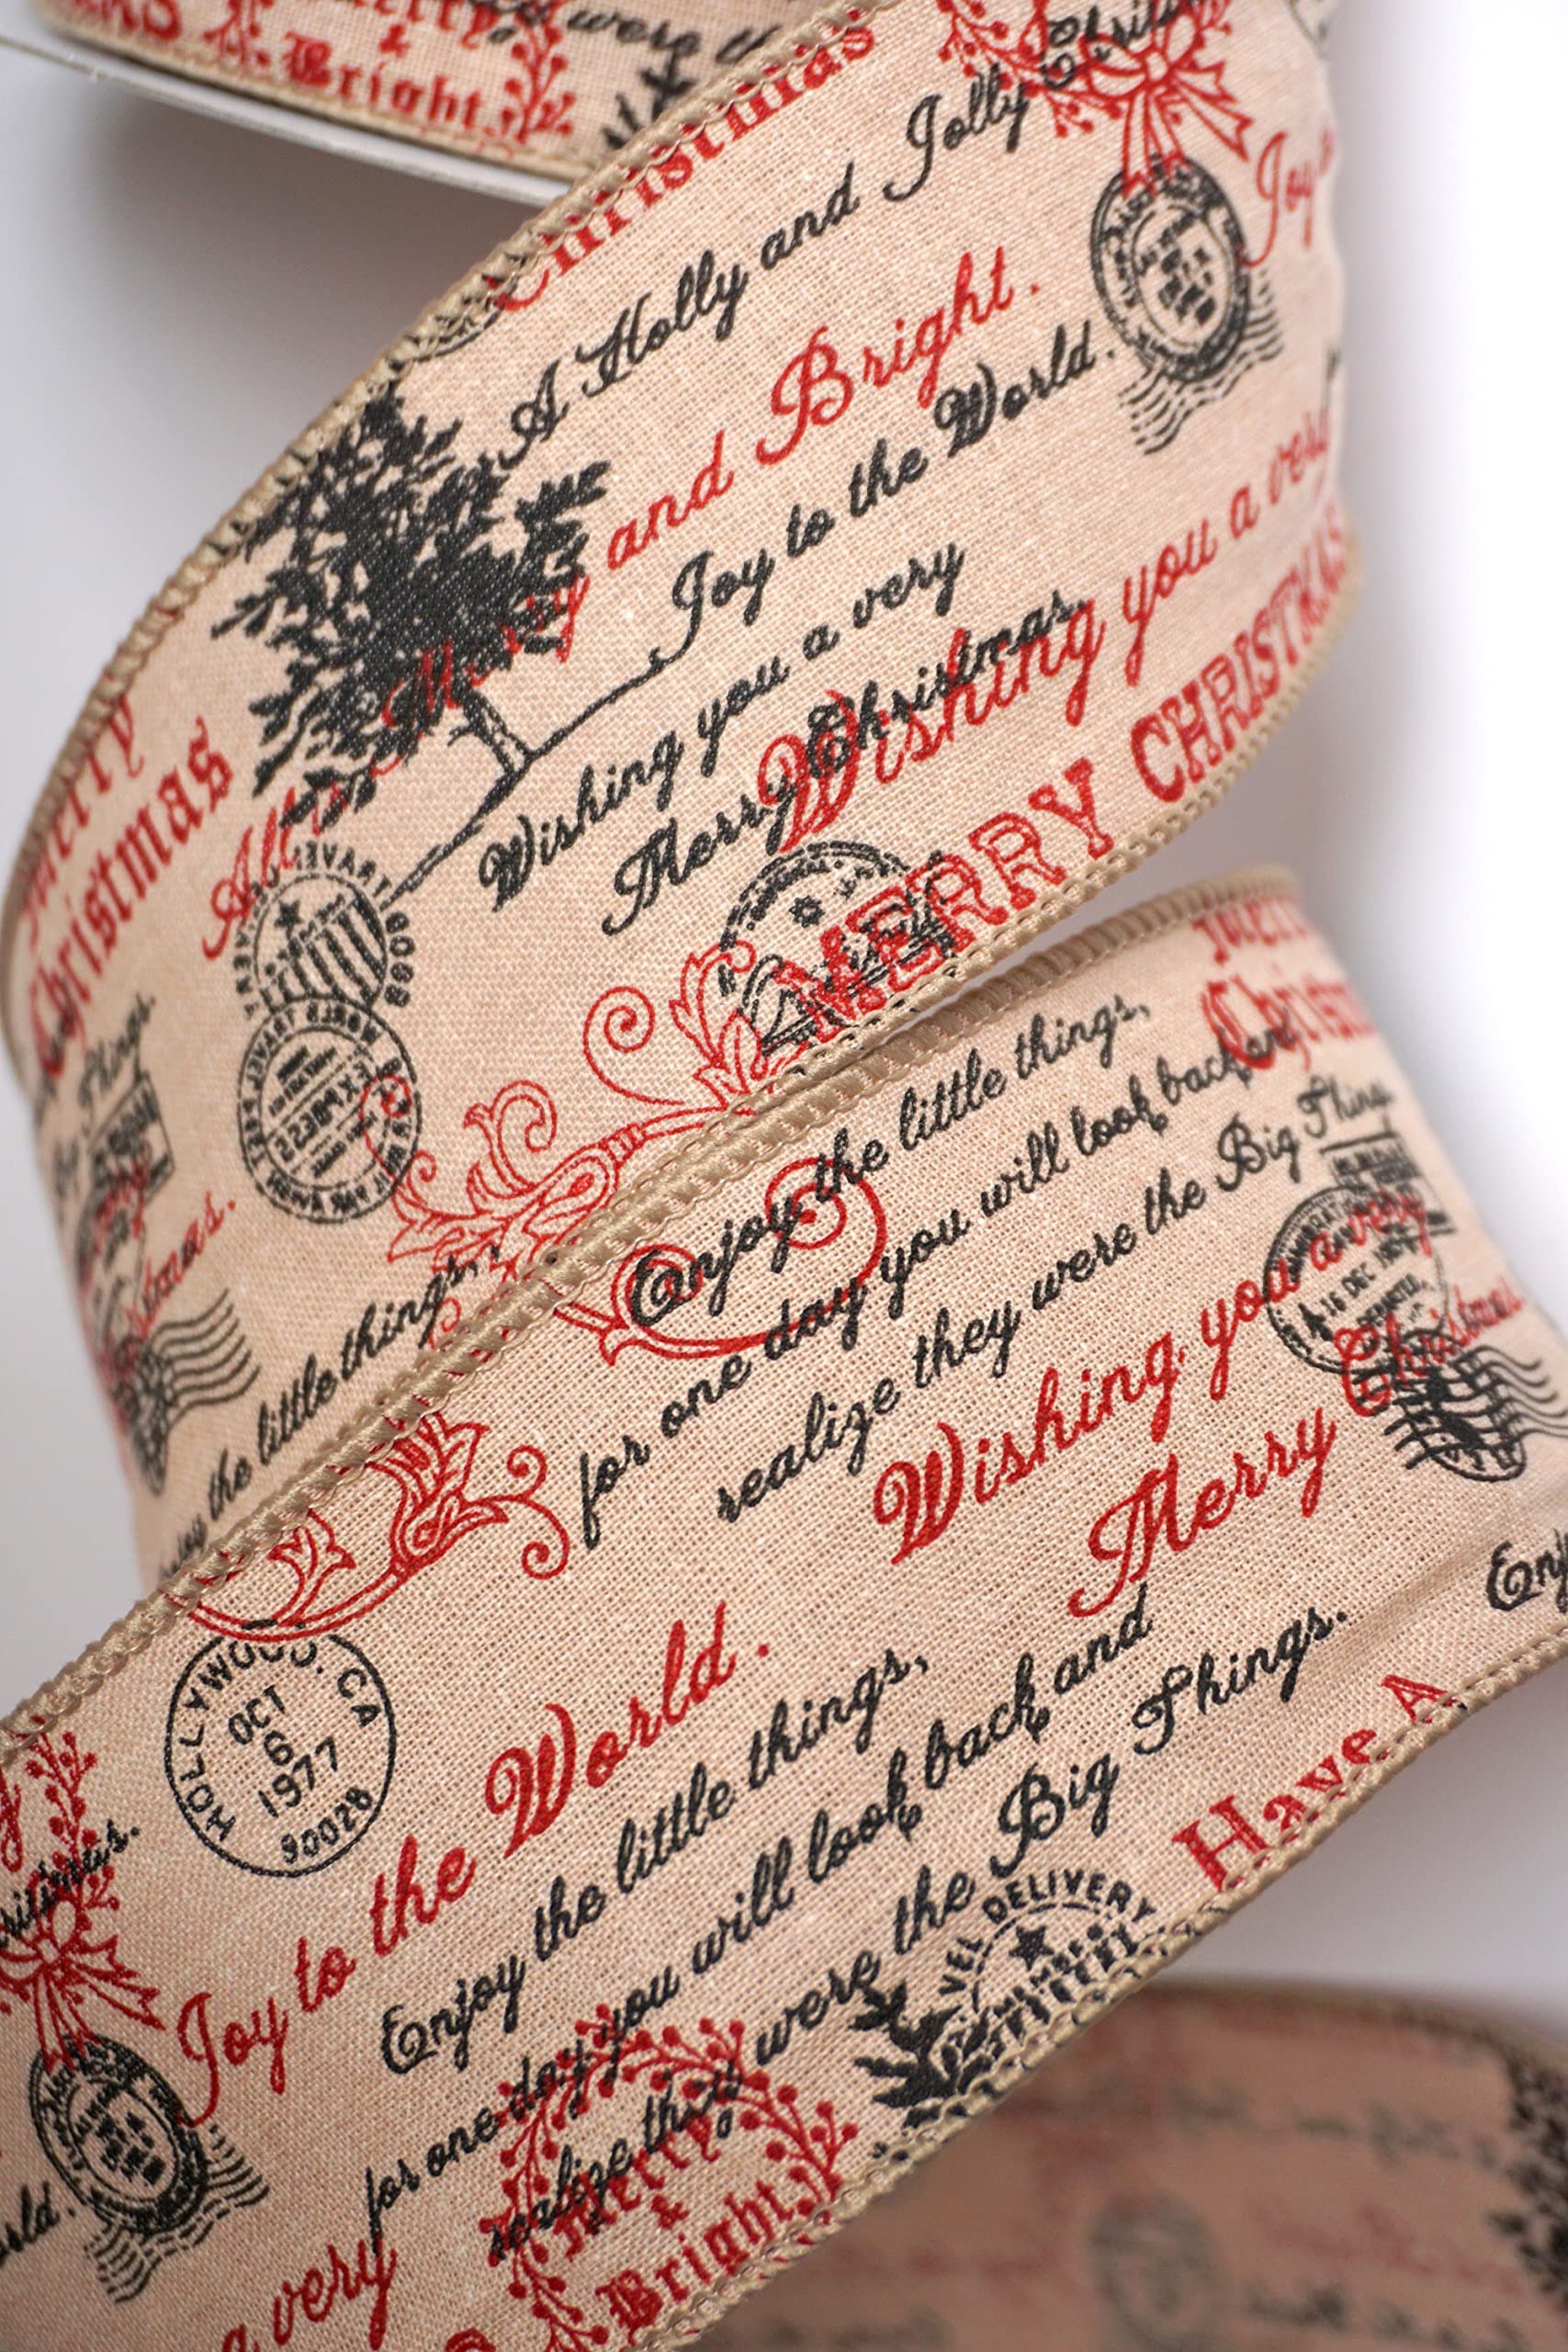 Bright
&
were
Christmas
A Holly and Jolly Christmas
Joy
Merry and Bright.
Joy to the World.
Wishing you a very
Merry Christmas.
Wishing you a very
MERRY CHRISTMAS
Merry
Christmas
All
the little things,
Enjoy the little things,
for one day you will look back and
realize they were the Big Things.
Merry
Wishing you a very
Merry Christmas
16 DEC
HOLLYWOOD. CA
OCT
6
1977
90028
Joy to the World.
Enjoy the little things,
for one day you will look back and
realize they were the Big Things.
Have A
DELIVERY
Merry
&
Bright
a very